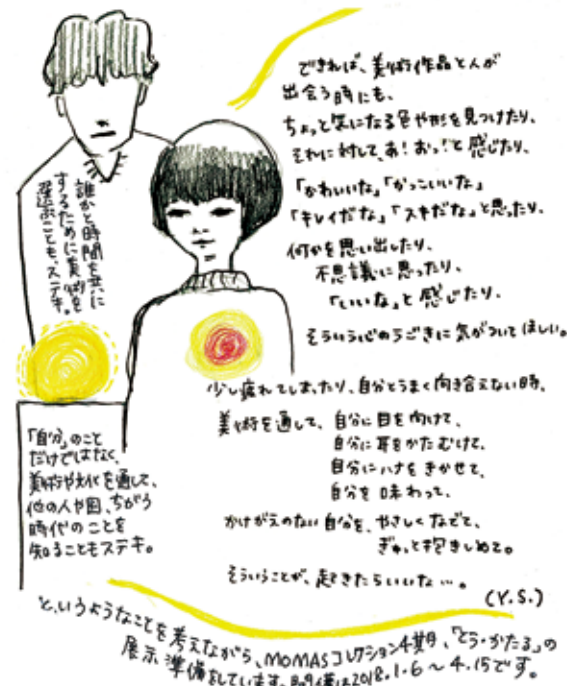 できれば、美術作品と人が
出会う時にも、
ちょっと気になる色や形を見つけたり、
それに対して、あ!おっ!と感じたり、
「かわいいな」「かっこいいな」
「キレイだな」「スキだな」と思ったり、
何かを思い出したり、
不思議に思ったり、
「いいな」と感じたり、
そういう心のうごきに気がついてほしい。
少し疲れてしまったり、自分とうまく向き合えない時、
美術を通して、自分に目を向けて、
自分に耳をかたむけて、
自分にハナをきかせて、
自分を味わって、
かけがえのない自分を、やさしくなでて、
ぎゅっと抱きしめて。
そういうことが、起きたらいいな…。
(Y.S.)
誰かと時間を共に
するために美術を
選ぶことも、ステキ。
「自分」のこと
だけではなく、
美術や文化を通して、
他の人や国、ちがう
時代のことを
知ることもステキ。
と、いうようなことを考えながら、MOMASコレクション4期目、「とう・かたる」の
展示準備をしています。開催は2018.1.6~4.15です。